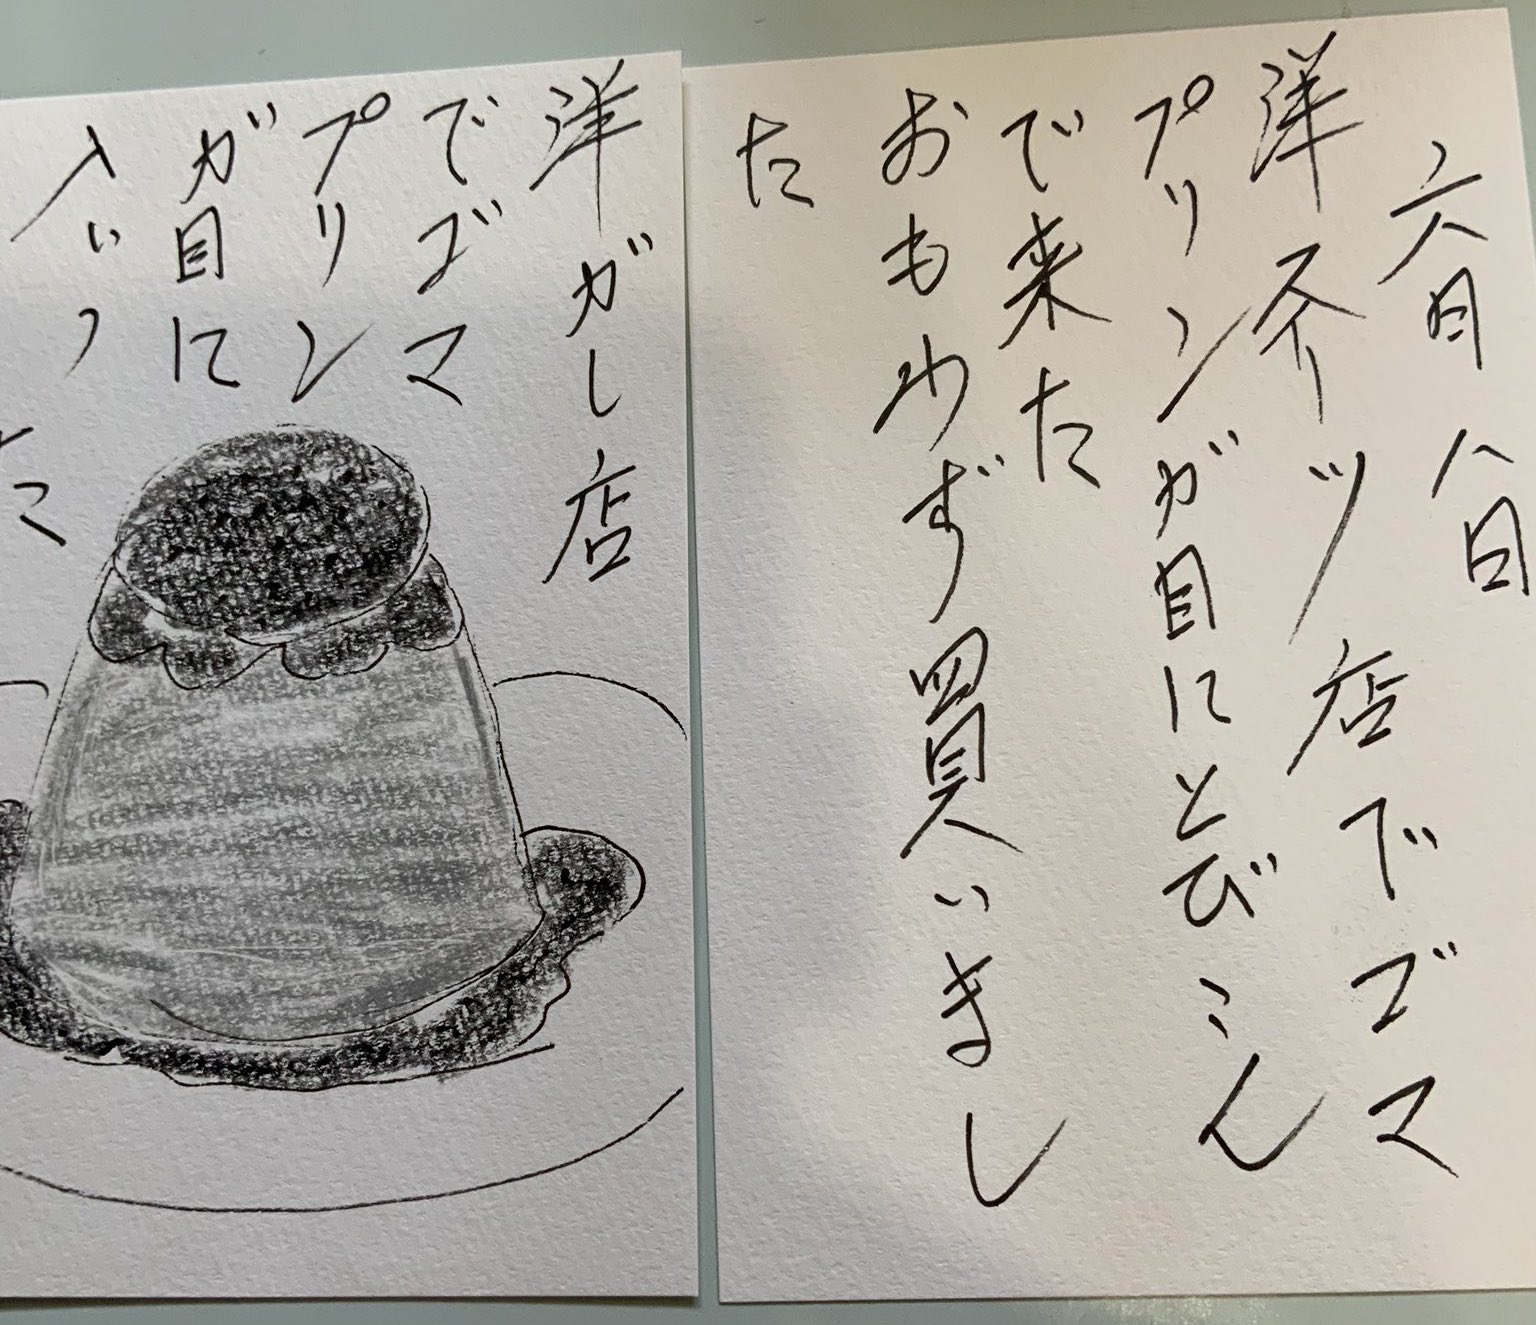 六月八日
洋スイーツ店でゴマ
プリンが目にとびこん
で来た
おもわず買いまし
た
洋がし店
でゴマ
プリン
が目に
入いっ
た